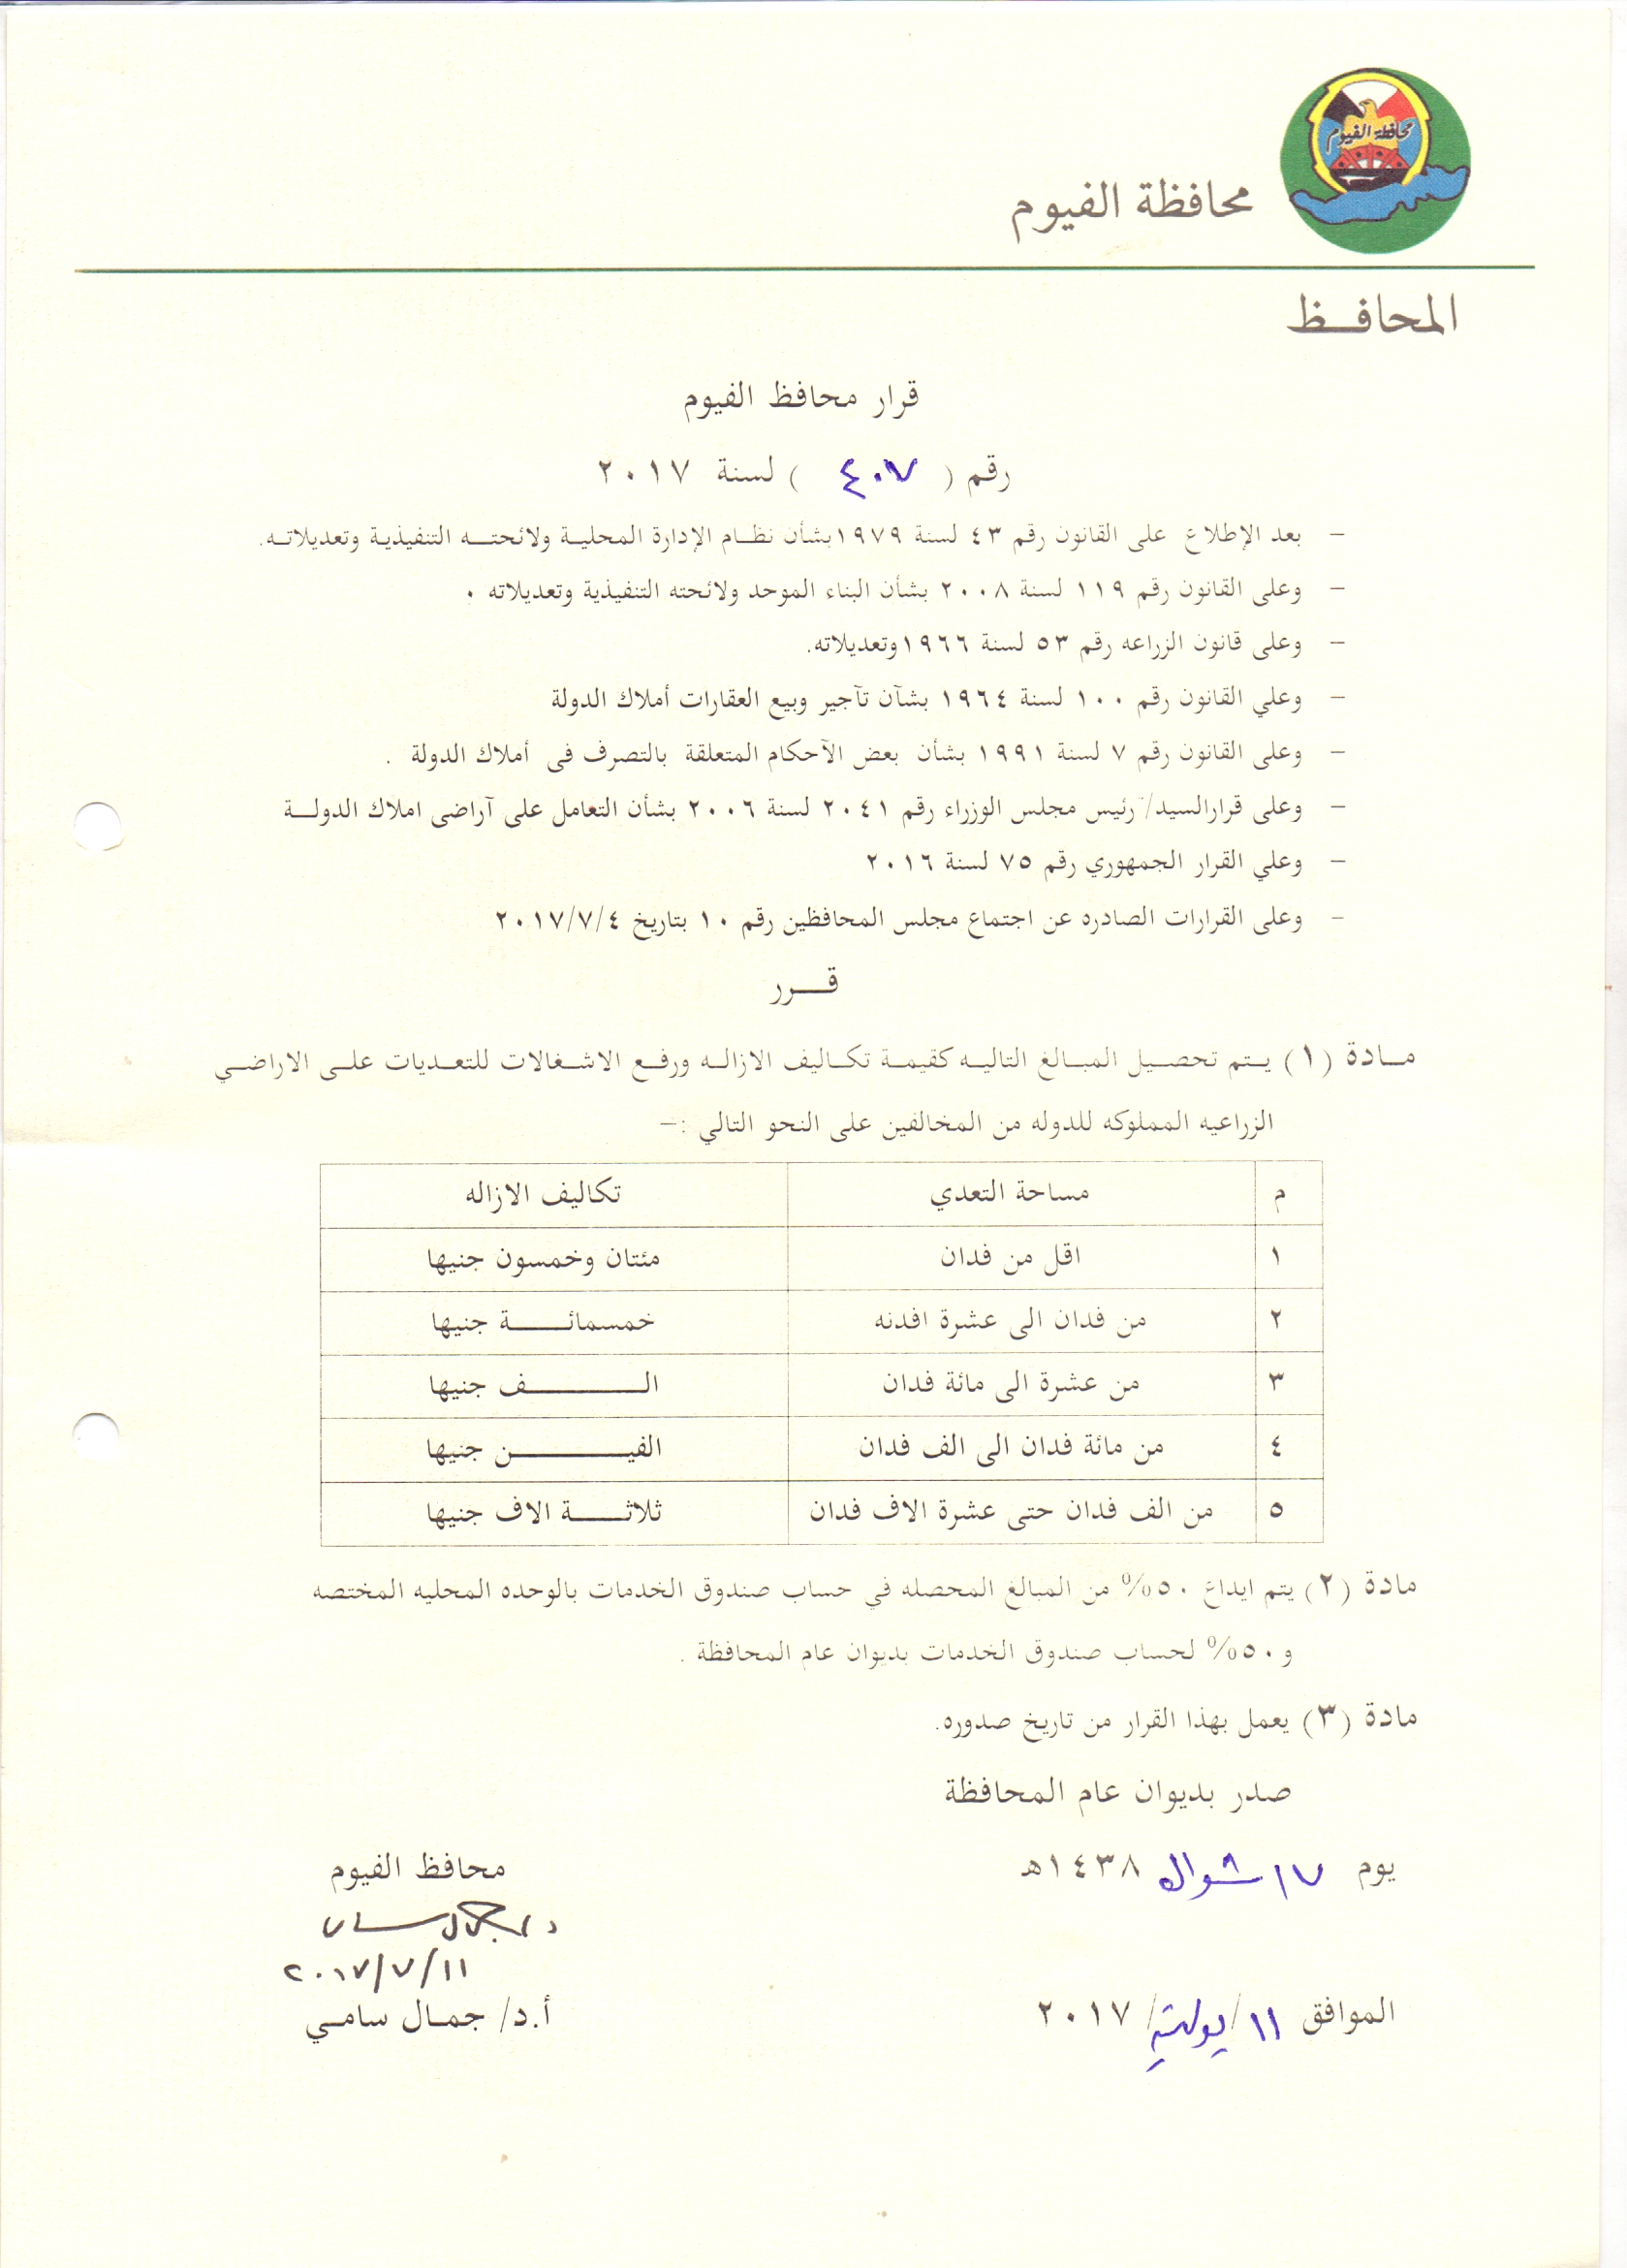 محافظة الفيوم
محافظة الفيوم
المحافـــظ
قرار محافظ الفيوم
رقم ( ٤٠٧ ) لسنة ٢٠١٧
- بعد الإطلاع على القانون رقم ٤٣ لسنة ١٩٧٩بشأن نظـام الإدارة المحليـة ولائحتـــه التنفيذيـة وتعديلاتـه.
- وعلى القانون رقم ١١٩ لسنة ٢٠٠٨ بشأن البناء الموحد ولائحته التنفيذية وتعديلاته ٠
- وعلى قانون الزراعه رقم ٥٣ لسنة ١٩٦٦وتعديلاته.
- وعلي القانون رقم ١٠٠ لسنة ١٩٦٤ بشآن تآجير وبيع العقارات أملاك الدولة
- وعلى القانون رقم ٧ لسنة ١٩٩١ بشأن بعض الآحكام المتعلقة بالتصرف فى أملاك الدولة .
- وعلى قرارالسيد/ رئيس مجلس الوزراء رقم ٢٠٤١ لسنة ٢٠٠٦ بشأن التعامل على آراضى املاك الدولـــة
- وعلي القرار الجمهوري رقم ٧٥ لسنة ٢٠١٦
- وعلى القرارات الصادره عن اجتماع مجلس المحافظين رقم ١٠ بتاريخ ٢٠١٧/٧/٤
قــــرر
مـادة (١) يـتم تحصـيل المبـالغ التاليـه كقيمـة تكـاليف الازالـه ورفـع الاشـغالات للتعـديات علـى الاراضـي
الزراعيه المملوكه للدوله من المخالفين على النحو التالي :-
م مساحة التعدي تكاليف الازاله
١ اقل من فدان مئتان وخمسون جنيها
٢ من فدان الى عشرة افدنه خمسمائـــــة جنيها
٣ من عشرة الى مائة فدان الــــــــــف جنيها
٤ من مائة فدان الى الف فدان الفيــــــــــن جنيها
٥ من الف فدان حتى عشرة الاف فدان ثلاثـــــة الاف جنيها
مادة (٢) يتم ايداع ٥٠% من المبالغ المحصله في حساب صندوق الخدمات بالوحده المحليه المختصه
و٥٠% لحساب صندوق الخدمات بديوان عام المحافظة .
مادة (٣) يعمل بهذا القرار من تاريخ صدوره.
صدر بديوان عام المحافظة
يوم ١٧ شوال ١٤٣٨هـ
محافظ الفيوم
٢٠١٧/٧/١١
الموافق ١١/يولية/ ٢٠١٧
أ.د/ جمـال سامـي